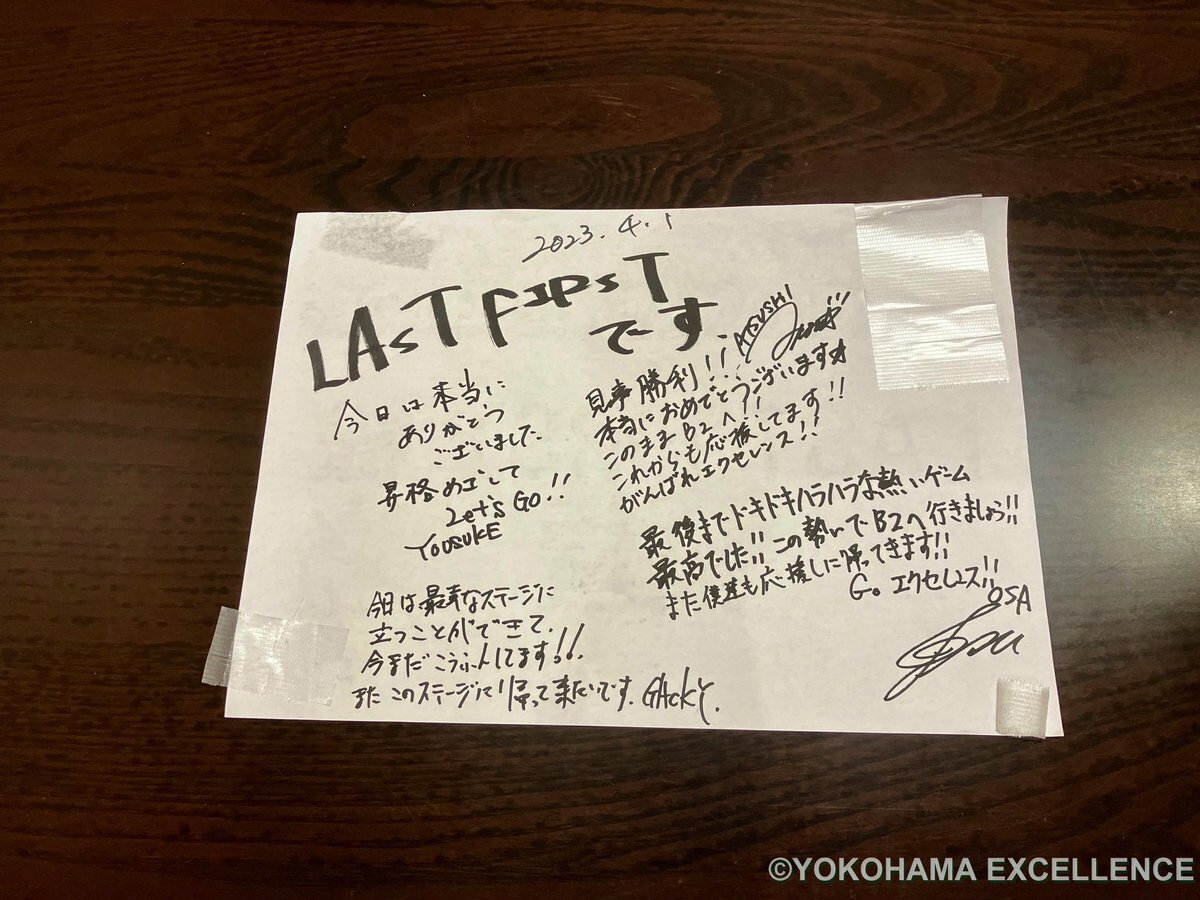 2023.4.1
LAsT FIRsT
です
今日は本当に
ありがとう
ございました
昇格めざして
Let's Go!!
YOUSUKE
ATSUSHI
見事勝利!!
本当におめでとうございます
このままB2へ!!
これからも応援してます!!
がんばれエクセレンス!!
最後までドキドキハラハラな熱いゲーム
最高でした!!この勢いでB2へ行きましょう!!
また僕達も応援しに帰ってきます!!
Go エクセレンス!!
OSA
今日は最幸なステージに
立つことができて、
今まだこうふんしてます!!
またこのステージに帰って来たいです。GAcKY.
©YOKOHAMA EXCELLENCE